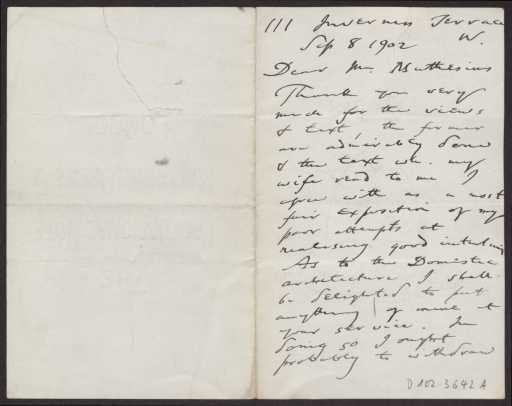 111 Inverness Terrace
W.
Sep 8 1902
Dear Mr. Muthesius
Thank you very
much for the views
& text, the former
are admirably done
& the text wh. my
wife read to me I
agree with as a most
fair exposition of my
poor attempts at
realising good intentions
As to the Domestic
architecture I shall
be delighted to put
anything of mine at
your service. In
doing so I ought
probably to withdraw
D 102-3642 A